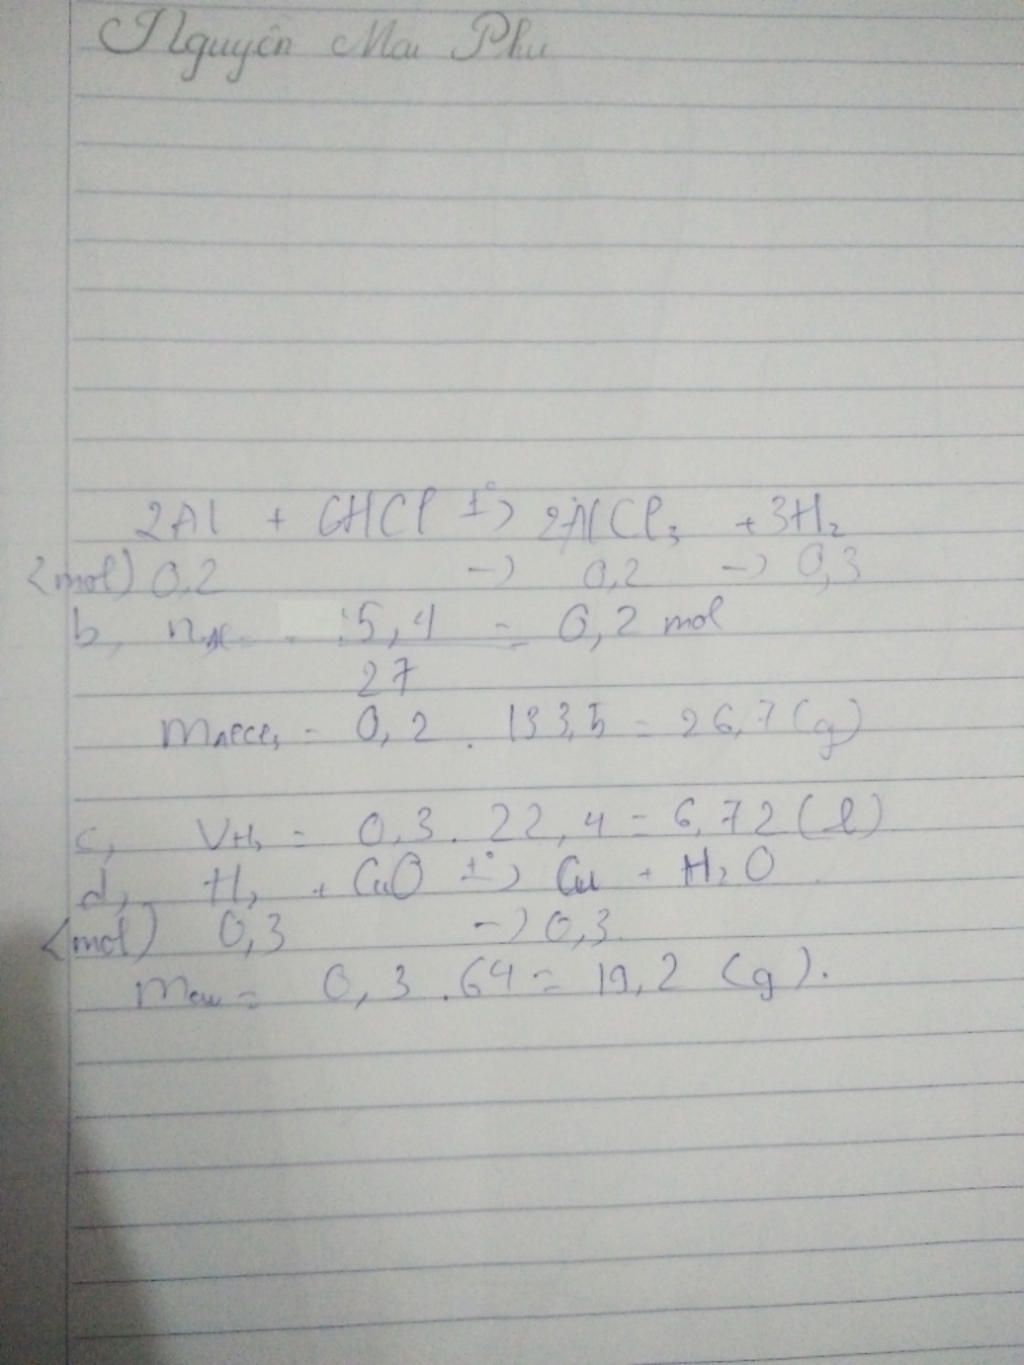 Nguyên Mai Phu
2Al + 6HCl t°> 2AlCl3 + 3H2
(mol) 0,2 -> 0,2 -> 0,3
b, nAl = 5,4 = 0,2 mol
27
mAlCl3 = 0,2 . 133,5 = 26,7 (g)
c, VH2 = 0,3 . 22,4 = 6,72 (l)
d, H2 + CuO t°> Cu + H2O
(mol) 0,3 -> 0,3
mCu = 0,3 . 64 = 19,2 (g).